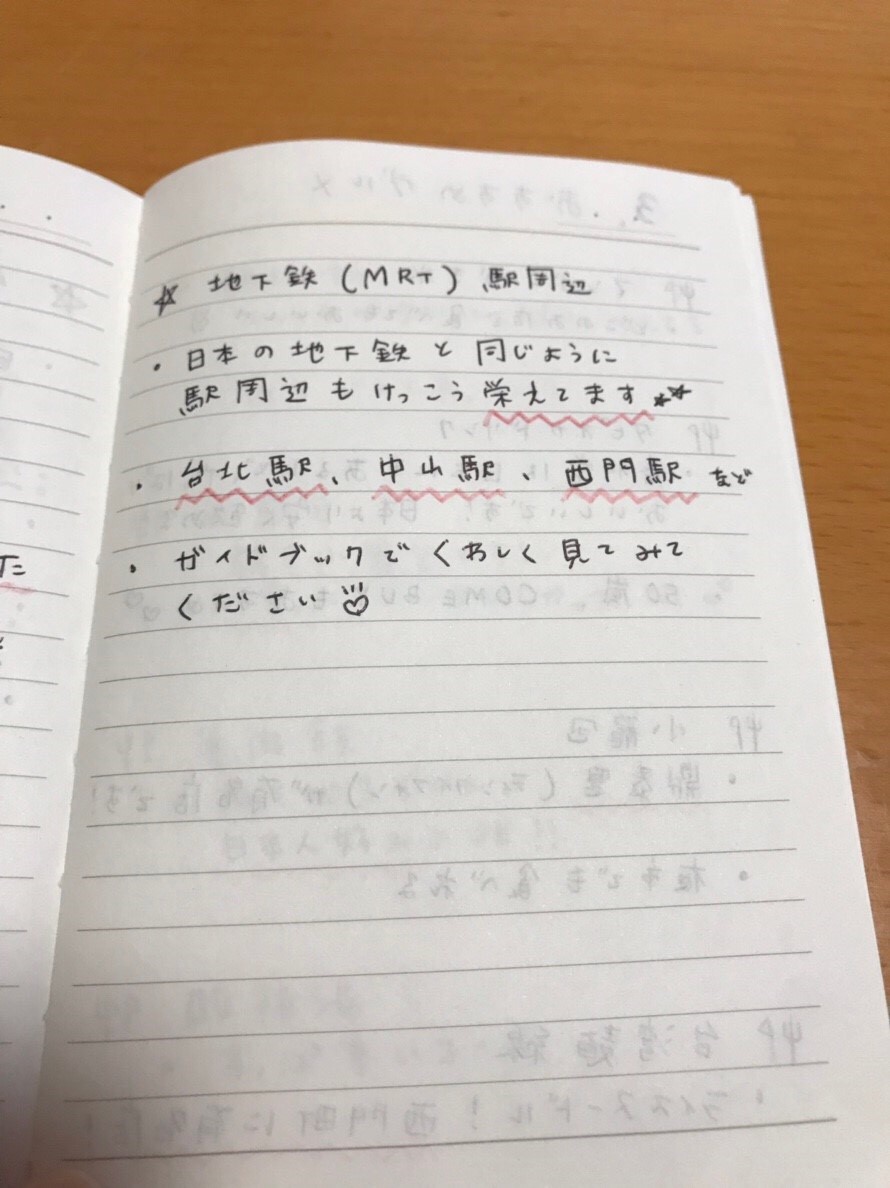 ☆ 地下鉄(MRT) 駅周辺
・日本の地下鉄と同じように
駅周辺もけっこう栄えてます
・台北駅、中山駅、西門駅 など
・ガイドブックでくわしく見てみて
ください